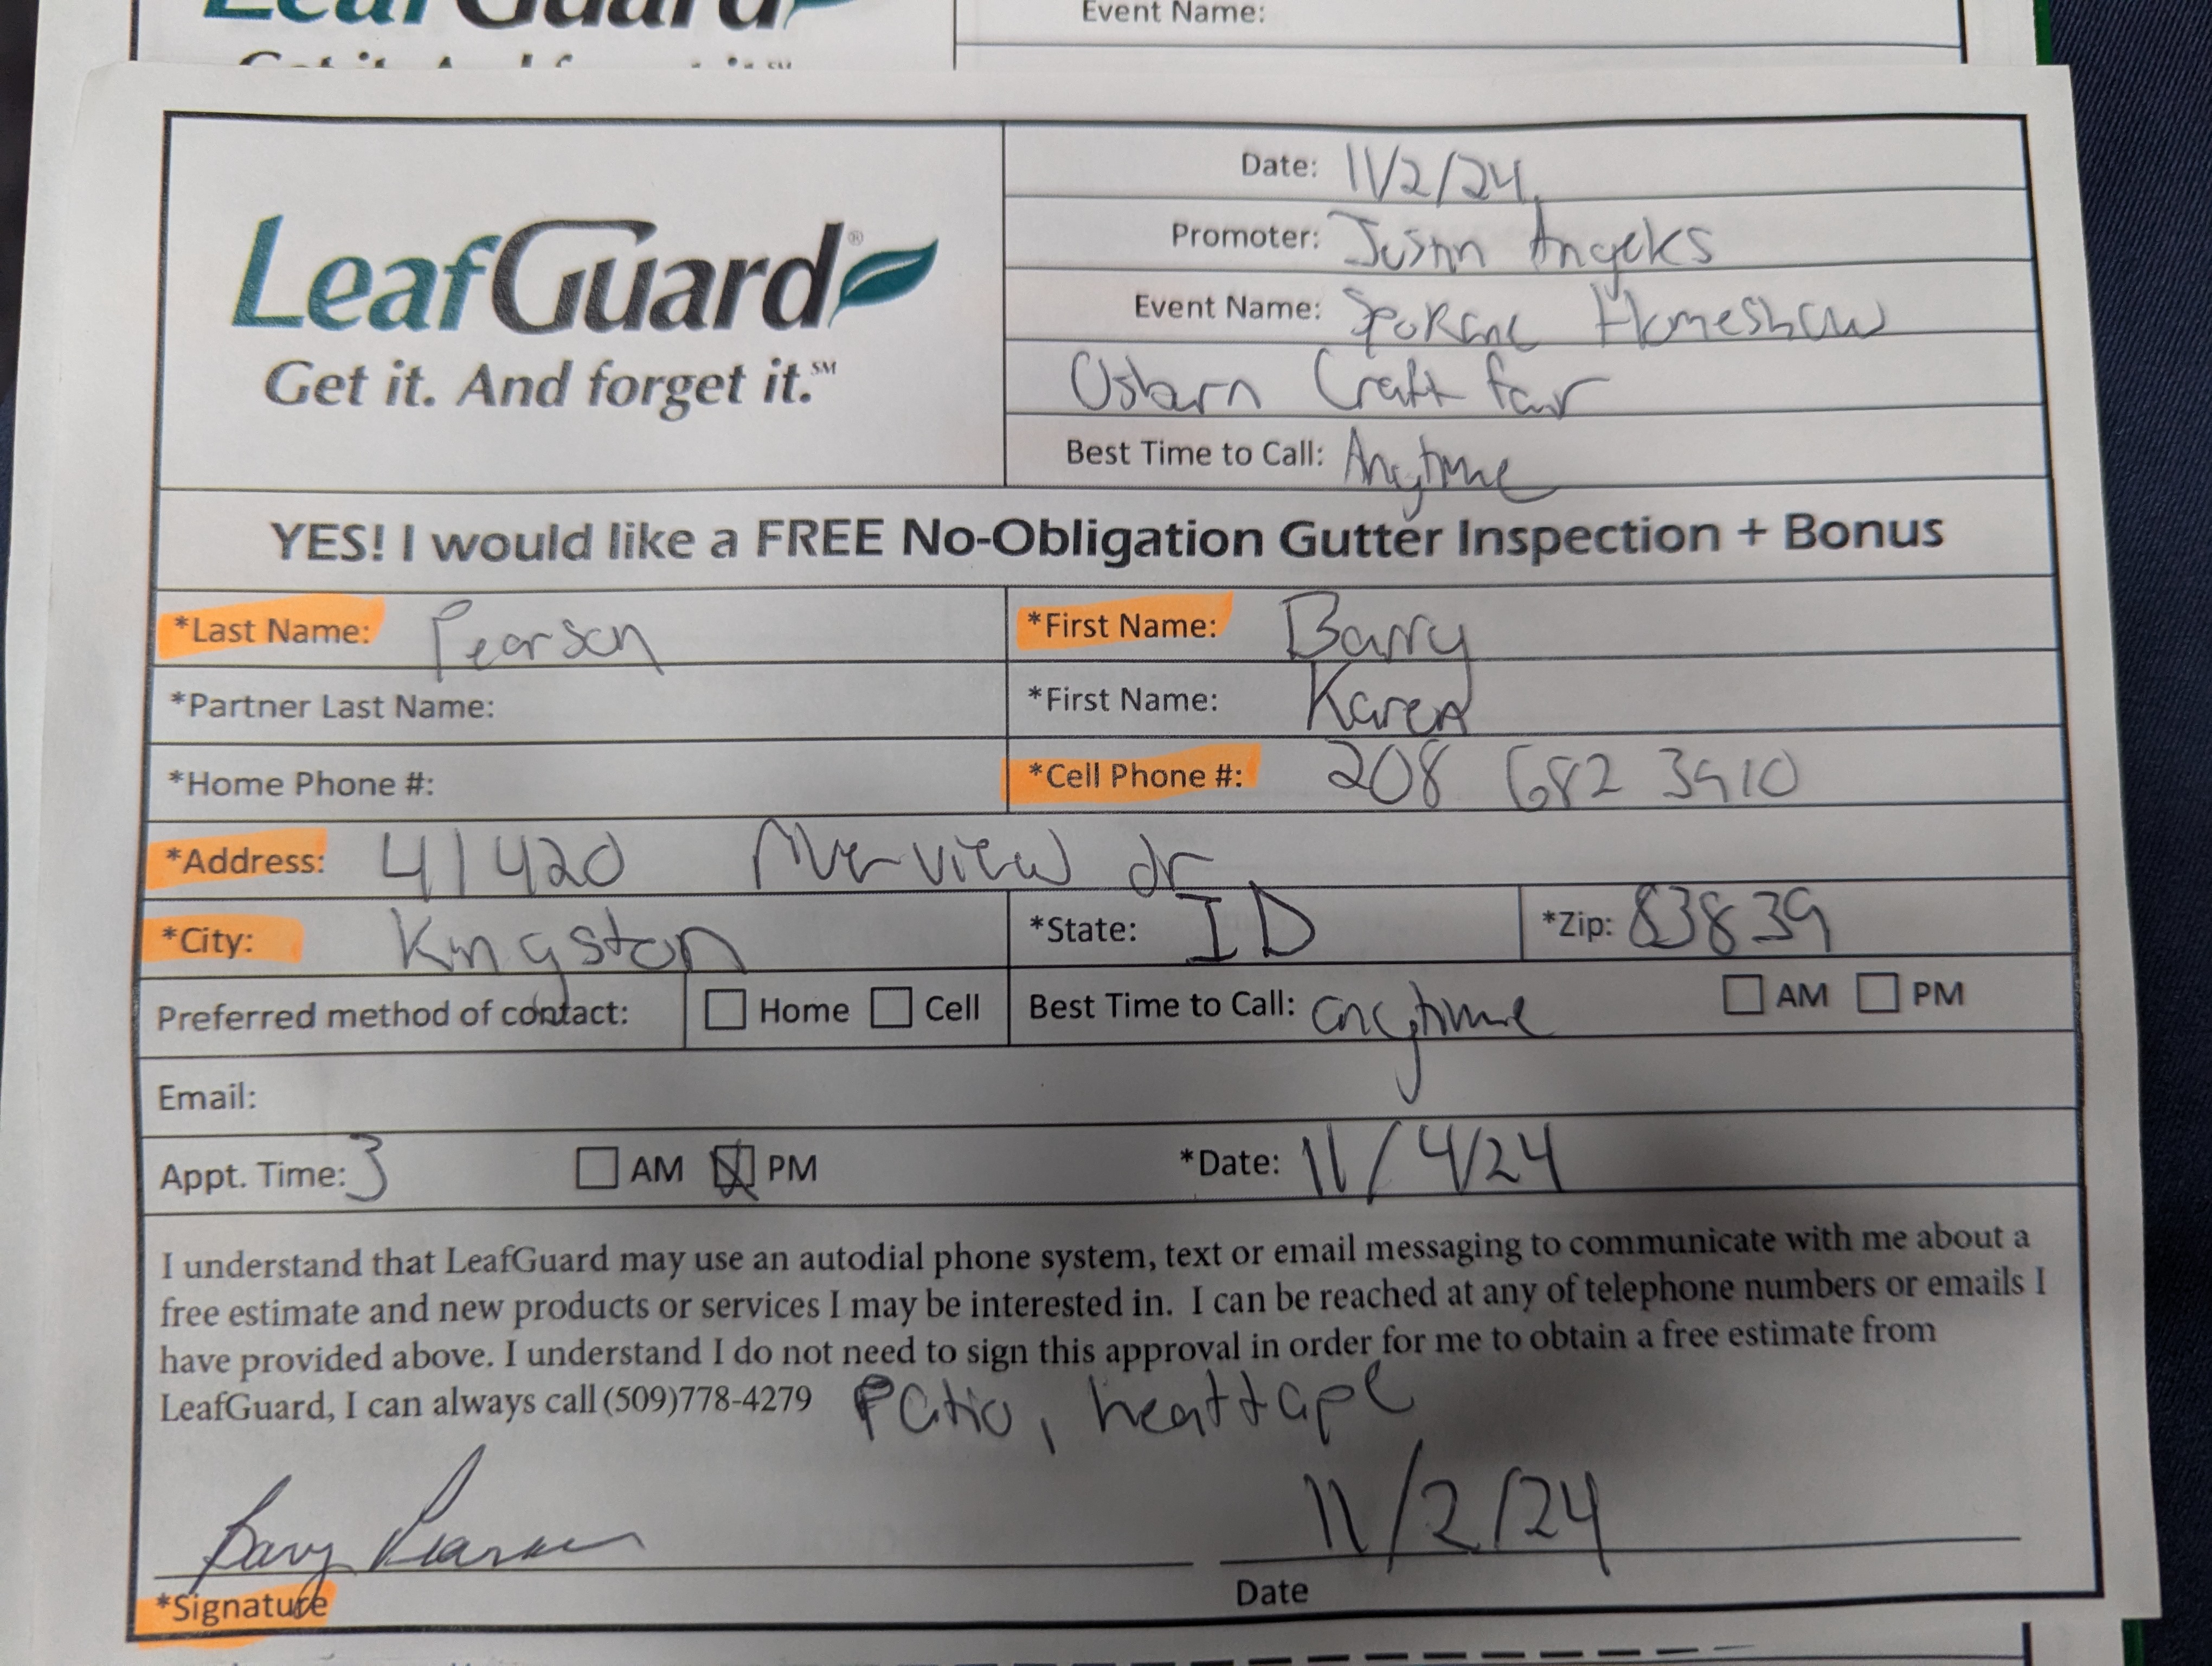 LeafGuard
Event Name:
LeafGuard®
Get it. And forget it.℠
Date: 11/2/24
Promoter: Justin Angeles
Event Name: Spokane Homeshow
Osburn Craft fair
Best Time to Call: Anytime
YES! I would like a FREE No-Obligation Gutter Inspection + Bonus
*Last Name: Pearson *First Name: Barry
*Partner Last Name: *First Name: Karen
*Home Phone #: *Cell Phone #: 208 682 3910
*Address: 41420 Riverview dr
*City: Kingston *State: ID *Zip: 83839
Preferred method of contact: Home Cell Best Time to Call: anytime AM PM
Email:
Appt. Time: 3 AM PM *Date: 11/4/24
I understand that LeafGuard may use an autodial phone system, text or email messaging to communicate with me about a
free estimate and new products or services I may be interested in. I can be reached at any of telephone numbers or emails I
have provided above. I understand I do not need to sign this approval in order for me to obtain a free estimate from
LeafGuard, I can always call (509)778-4279 Patio, heattape
Barry Pearson 11/2/24
*Signature Date